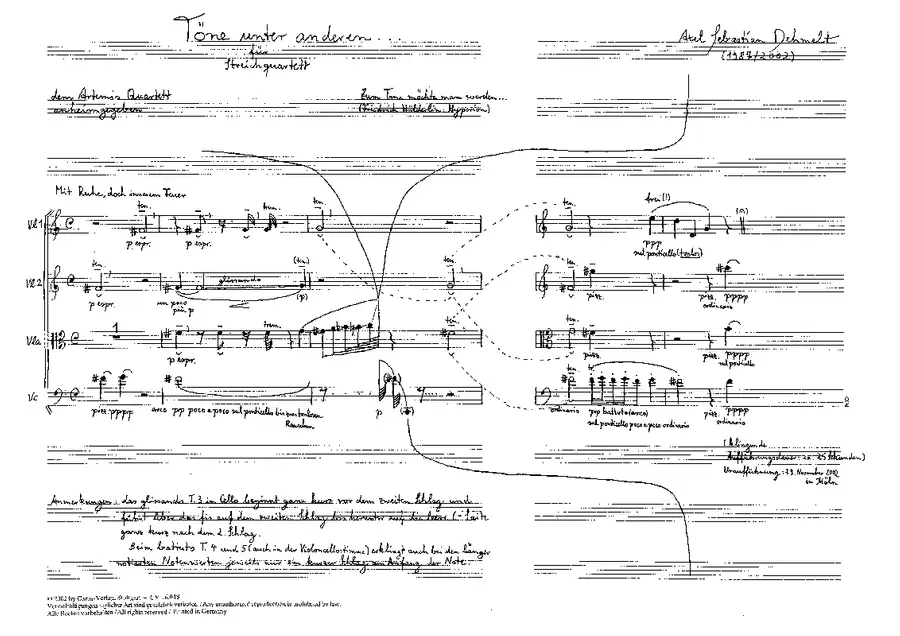 Töne unter anderen...
für
Streichquartett
Axel Sebastian Dehmelt
(1987/2002)
dem Artemis Quartett
anheimgegeben
Zum Tone möchte man werden...
(Friedrich Hölderlin, Hyperion)
Mit Ruhe, doch innerem Feuer
ten. ten. ten. frei (!)
Vl 1
p espr. p espr. ppp
sul ponticello (tasto)
ten. (ten.) ten. ten.
Vl 2 glissando
p espr. un poco (p) pizz. pizz. pppp
più p ordinario
1 ten. ten.
Vla
p espr. pizz. pizz. pppp
sul ponticello
ten.
Vc
pizz. pppp arco ppp poco a poco sul ponticello bis zum tonlosen p ordinario ppp battuto (arco) pizz. pppp
Rauschen sul ponticello poco a poco ordinario ordinario
Aufführungsdauer: ca. Sekunden)
Uraufführung: November
in Köln
Anmerkungen: das glissando T. 3 im Cello beginnt ganz kurz vor dem zweiten Schlag und
führt über das fis auf den zweiten Schlag bis herunter auf die leere C-Saite
ganz kurz nach dem 2. Schlag.
Beim battuto T. 4 und 5 (auch in der Violoncellostimme) erklingt auch bei den länger
notierten Notenwerten jeweils nur ein kurzer Schlag am Anfang der Note
by Carus-Verlag, Stuttgart
Vervielfältigungen jeglicher Art sind gesetzlich verboten. / Any unauthorized reproduction is prohibited by law.
Alle Rechte vorbehalten / All rights reserved / Printed in Germany